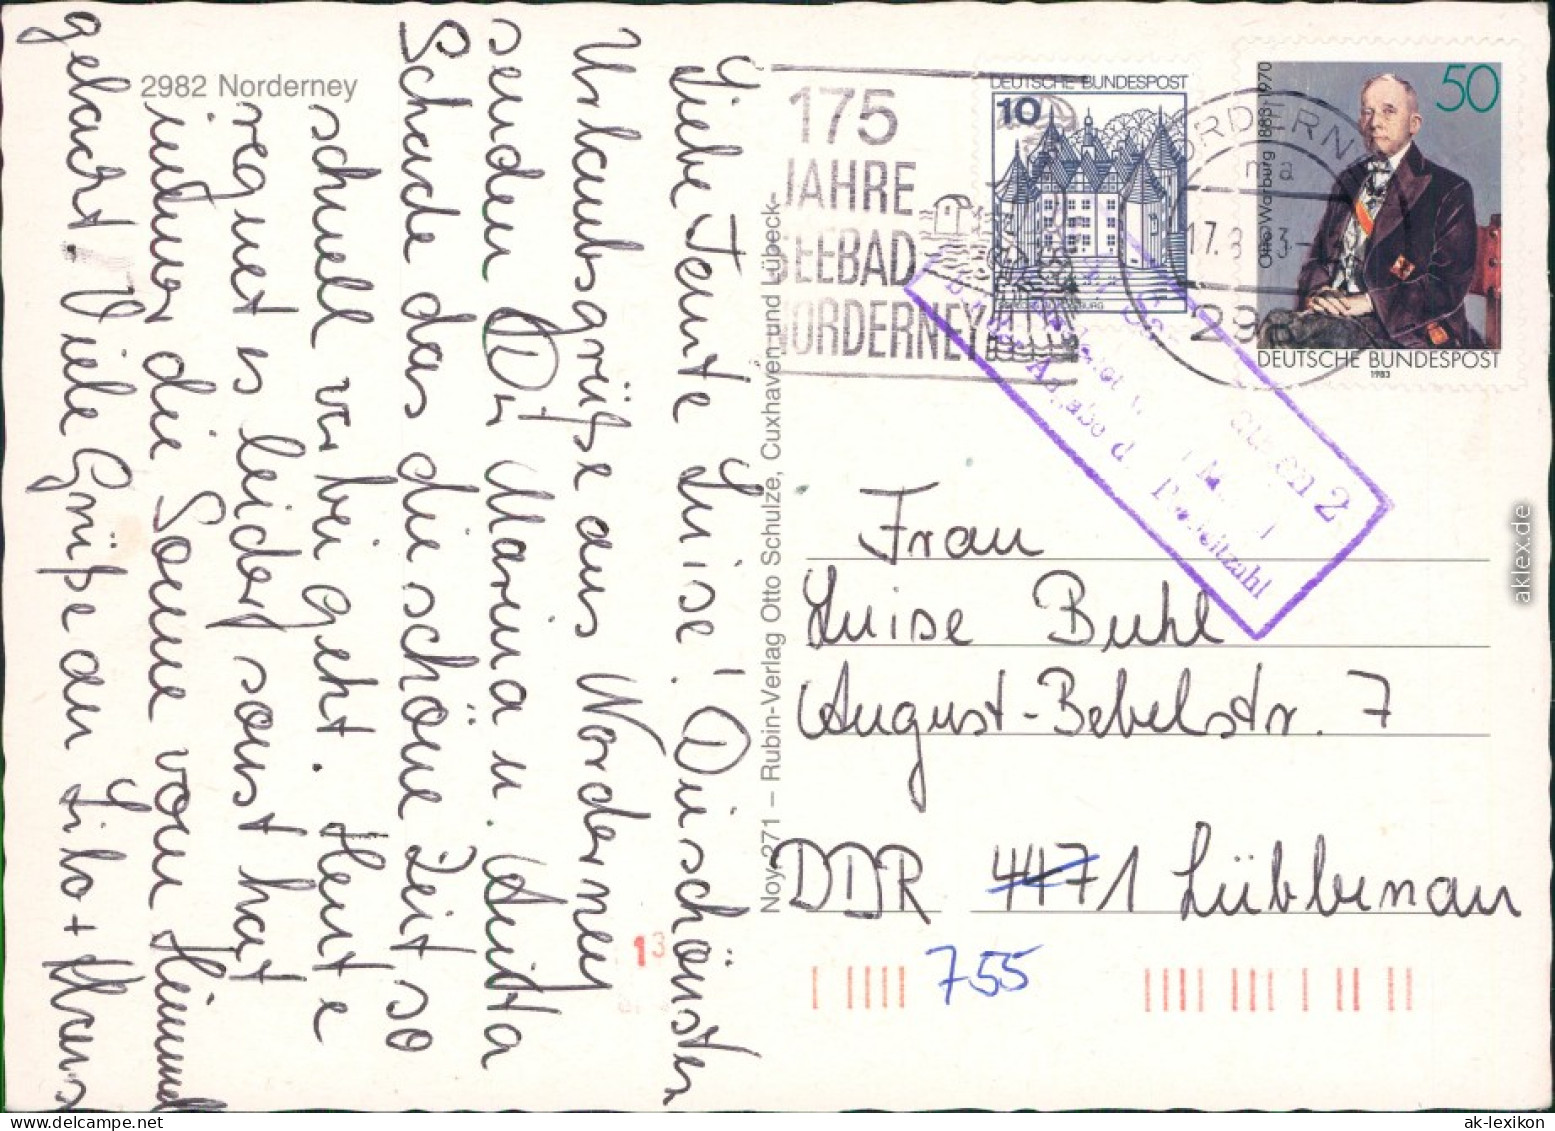 2982 Norderney
Liebe Tante Luise! Die schönsten
Urlaubsgrüße aus Norderney
senden Dir Marina u. Anita
Schade das die schöne Zeit so
schnell vorbei geht. Heute
regnet es leider, sonst hat
immer die Sonne vom Himmel
gelacht. Viele Grüße an Lilo + Klaus
Noy 271 – Rubin-Verlag Otto Schulze, Cuxhaven und Lübeck
175
JAHRE
SEEBAD
NORDERNEY
DEUTSCHE BUNDESPOST
10
NORDERNEY
ma
17.8.
298
50
Otto Warburg 1883-1970
DEUTSCHE BUNDESPOST
1983
2
Angabe d. Postleitzahl
Frau
Luise Buhl
August-Bebelstr. 7
DDR 4471 Lübbenau
755
13
aklex.de
ak-lexikon